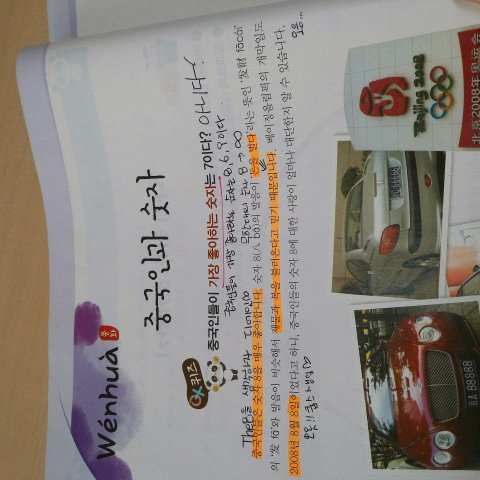 Wénhuà 문화
중국인과 숫자
OX퀴즈
중국인들이 가장 좋아하는 숫자는 7이다? 아니다
중국인들이 가장 좋아하는 숫자는 8, 6, 9이다
무한대의 숫자 8 → ∞
중국인들은 숫자 8을 매우 좋아합니다. 숫자 8(八 bā)의 발음이 '돈을 벌다'라는 뜻인 '发财 fācái'
의 '发 fā'와 발음이 비슷해서 재물과 복을 불러온다고 믿기 때문입니다. 베이징올림픽의 개막일도
2008년 8월 8일이었다고 하니, 중국인들의 숫자 8에 대한 사랑이 얼마나 대단한지 알 수 있습니다.
Beijing 2008
北京2008年奥运会
88888